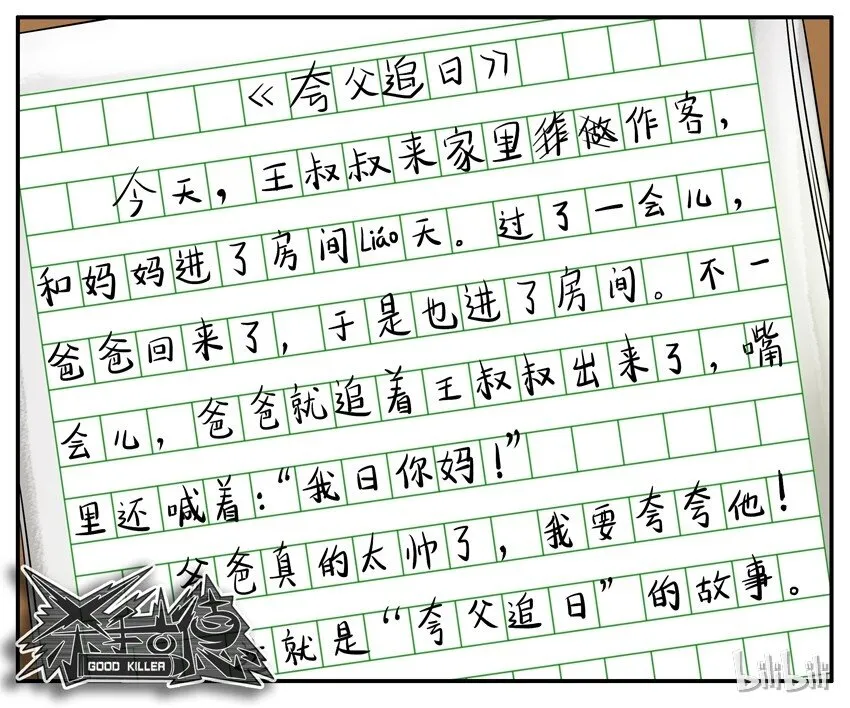 《夸父追日》
今天，王叔叔来家里作客，
和妈妈进了房间Liáo天。过了一会儿，
爸爸回来了，于是也进了房间。不一
会儿，爸爸就追着王叔叔出来了，嘴
里还喊着：“我日你妈！”
爸爸真的太帅了，我要夸夸他！
就是“夸父追日”的故事。
GOOD KILLER
bilibili